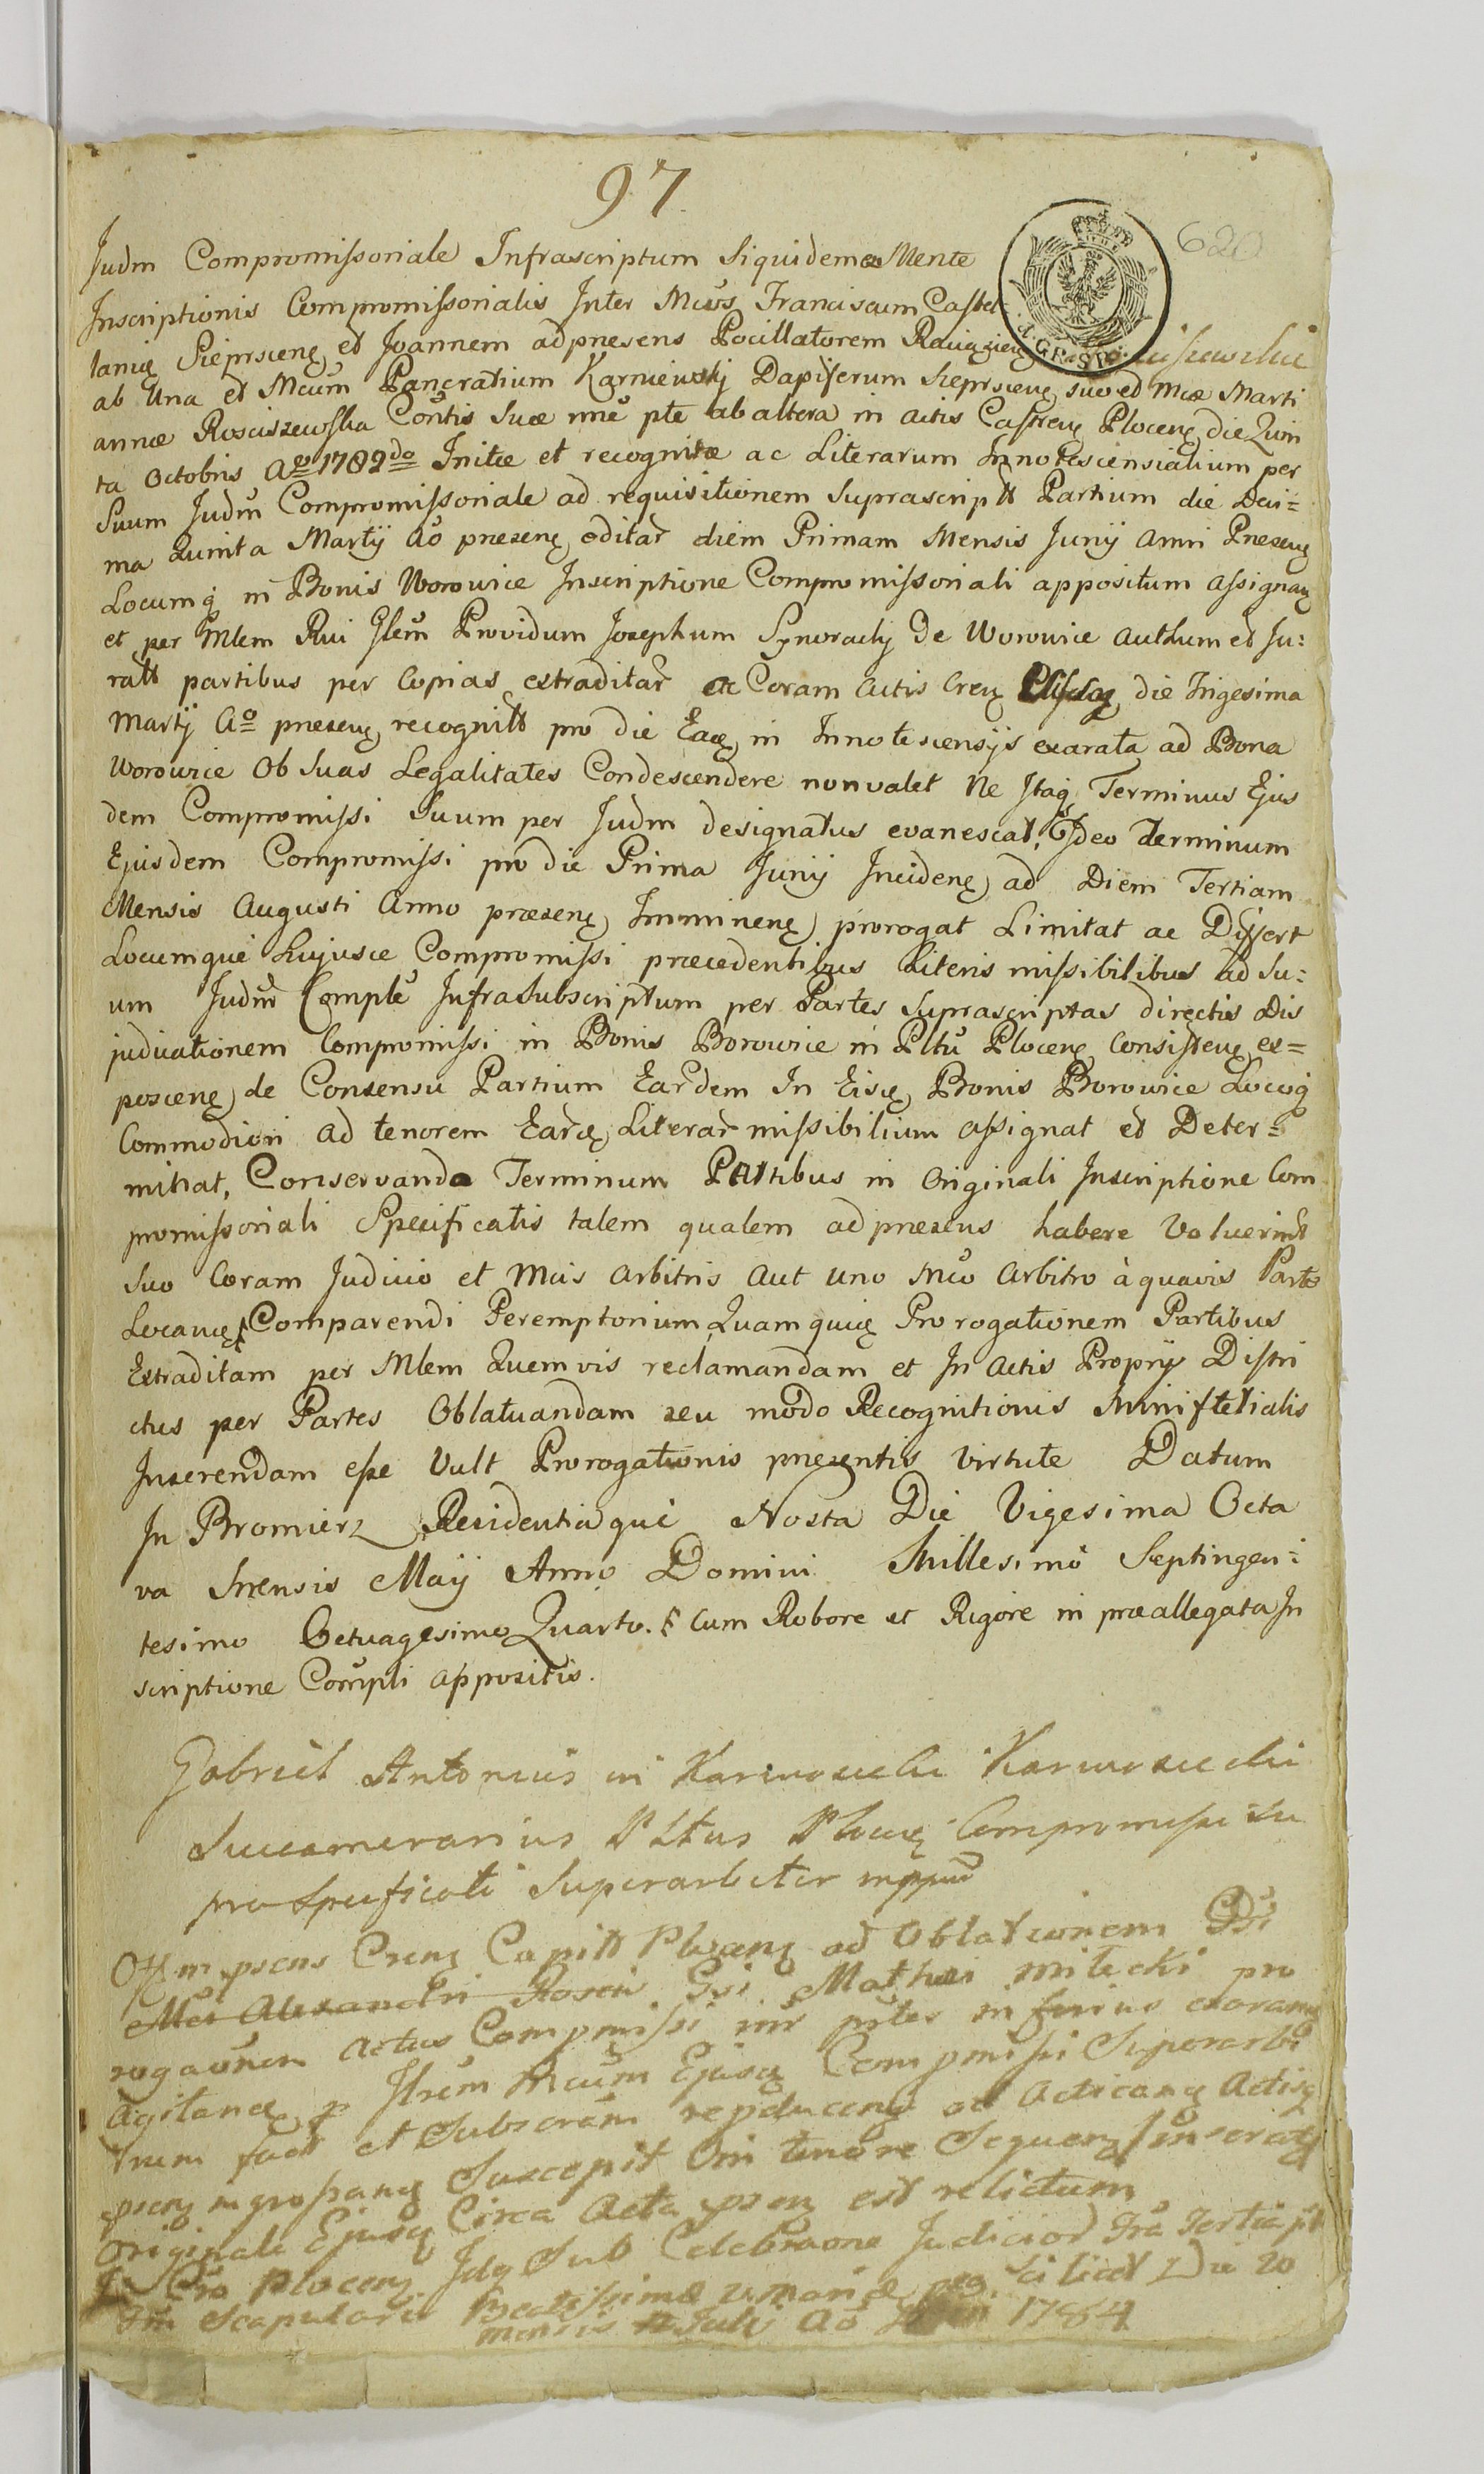 97
620
Judm Compromissoriale Infrascriptum Siquidem Mente
4. GR. SR.
Inscriptionis Compromissorialis Inter Mcos Franciscum Castel
lanię Sieprscenę et Joannem ad presens Pocillatorem
ab Una et Mcum Pancratium Karniewskj Dapiferum Sieprscenę suo et Mcæ Mari
annæ Rosciszewska Contis Suæ nnē pte ab altera in actis Castrenę Plocenę die Quin
ta Octobris Aō 1782do Initæ et recognitæ ac Literarum Innotescensialium per
Suum Judm̄ Compromissoriale ad requisitionem Suprascriptt Partium die Deci=
ma Quinta Martij Aō presenę editar diem Primam Mensis Junij Anni Presenę
Locumq in Bonis Worowice Inscriptione Compromissoriali appositum assignanę
et per Mlem Rni Glem̄ Providum Josephum Synoracky de Worowice Authum et Ju:
ratt partibus per Copias extraditar ac Coram Actis Crenę die Trigesima
Martij Aō presenę recognitt pro die Eaę in Innotescensijs exarata ad Bona
Worowice Ob Suas Legalitates Condescendere non valet Ne Itaq Terminus Ejus
dem Compromissi Suum per Judm designatus evanescat, Ideo Terminum
Ejusdem Compromissi pro die Prima Junij Incidenę ad Diem Tertiam
Mensis Augusti Anno præsenę Imminenę prorogat Limitat ac Differt
Locumque hujusce Compromissi præcedentibus Literis missibilibus ad Su:
um Judm̄ Complē Infrasubscriptum per Partes Suprascriptas directis Dis
judicationem Compromissi in Bonis Borowice in Pltū Plocenę Consistenę ex=
poscenę de Consensu Partium Eardem In Eisdę Bonis Borowice Locoq
Commodiori ad tenorem Eardę Literar missibilium assignat et Deter=
minat, Conservando Terminum Partibus in Originali Inscriptione Com
promissoriali Specificatis talem qualem ad presens habere Voluerint
Suo Coram Judicio et Mcis Arbitris Aut Uno Mco Arbitro à quavis Parte
Locanę Comparendi Peremptorium Quamquię Prorogationem Partibus
Extraditam per Mlem Quemvis reclamandam et In Actis Proprij Distri
ctus per Partes Oblatuandam seu modo Recognitionis Ministerialis
Inserendam esse Vult Prorogationis presentis virtute Datum
In Bromierz Residentiaque Nosta Die Vigesima Octa
va Mensis Maij Anno Domini Millesimo Septingen=
tesimo Octuagesimo Quarto. Cum Robore et Rigore in præallegata In
scriptione Compli appositis.
Gabriel Antonius in Karwosiecki Karwosiecki
Succamerarius Pltus Plocenę Compromissi su
pra Specificati Superarbiter mppria
Offm psens Crenę Capitt Plocenę ad Oblationem Gsi
Mci Alexandri Rosciis Gsi Mathæi Milecki pro
rogaonem actus Compmissi inr ptes inferius exoramę
Agitanę p Illrem Mcum Ejusdę Compmissi Superarbi
trum fact et Subscram̄ repducenę ad Acticanę Actisq
psenę ingrossanę Suscepit Cui tenore Sequenę
Originale Ejusdę Circa Acta psenę est relictum
Cro Plocenę Idq Sub Celebraone Judicior
Scapularis Beatissimæ V. Mariæ scilicet Die 20
mensis Julii Aō 1784